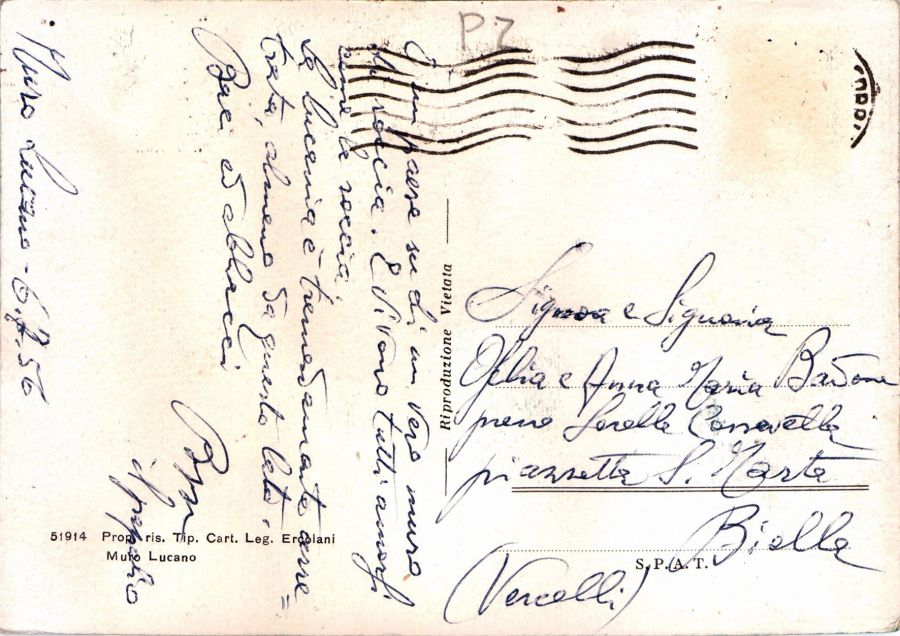 PZ
Muro Lucano -
È un paese su di un vero muro
di roccia. E vivono tutti amorfi
come la roccia.
La lucania è tremendamente arre=
trata, almeno da questo lato.
Baci ed abbracci
Riproduzione Vietata
Signora e Signorina
Ofelia e Anna Maria Badone
presso Sorella
piazzetta S. Marta
Biella
(Vercelli)
51914 Prop. ris. Tip. Cart. Leg. Ercolani
Muro Lucano
S.P.A.T.